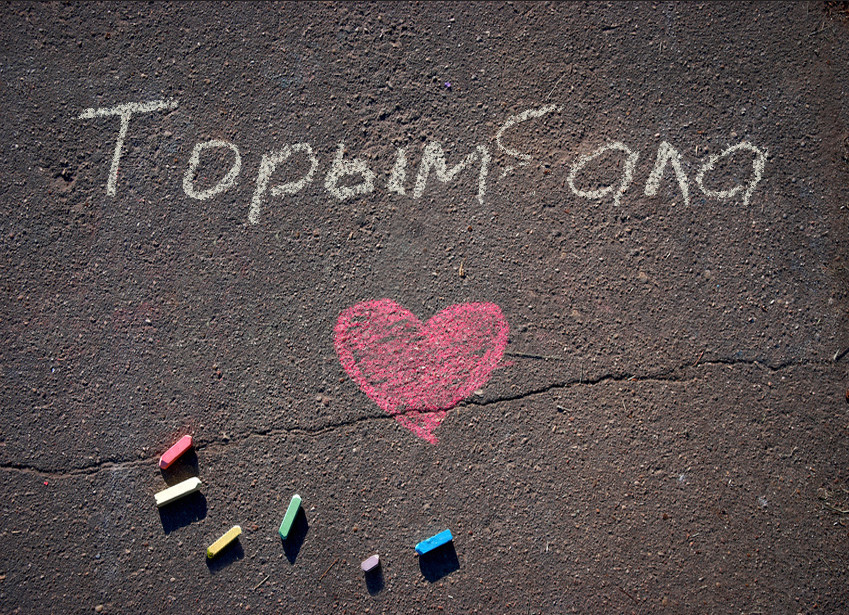 Торымбала